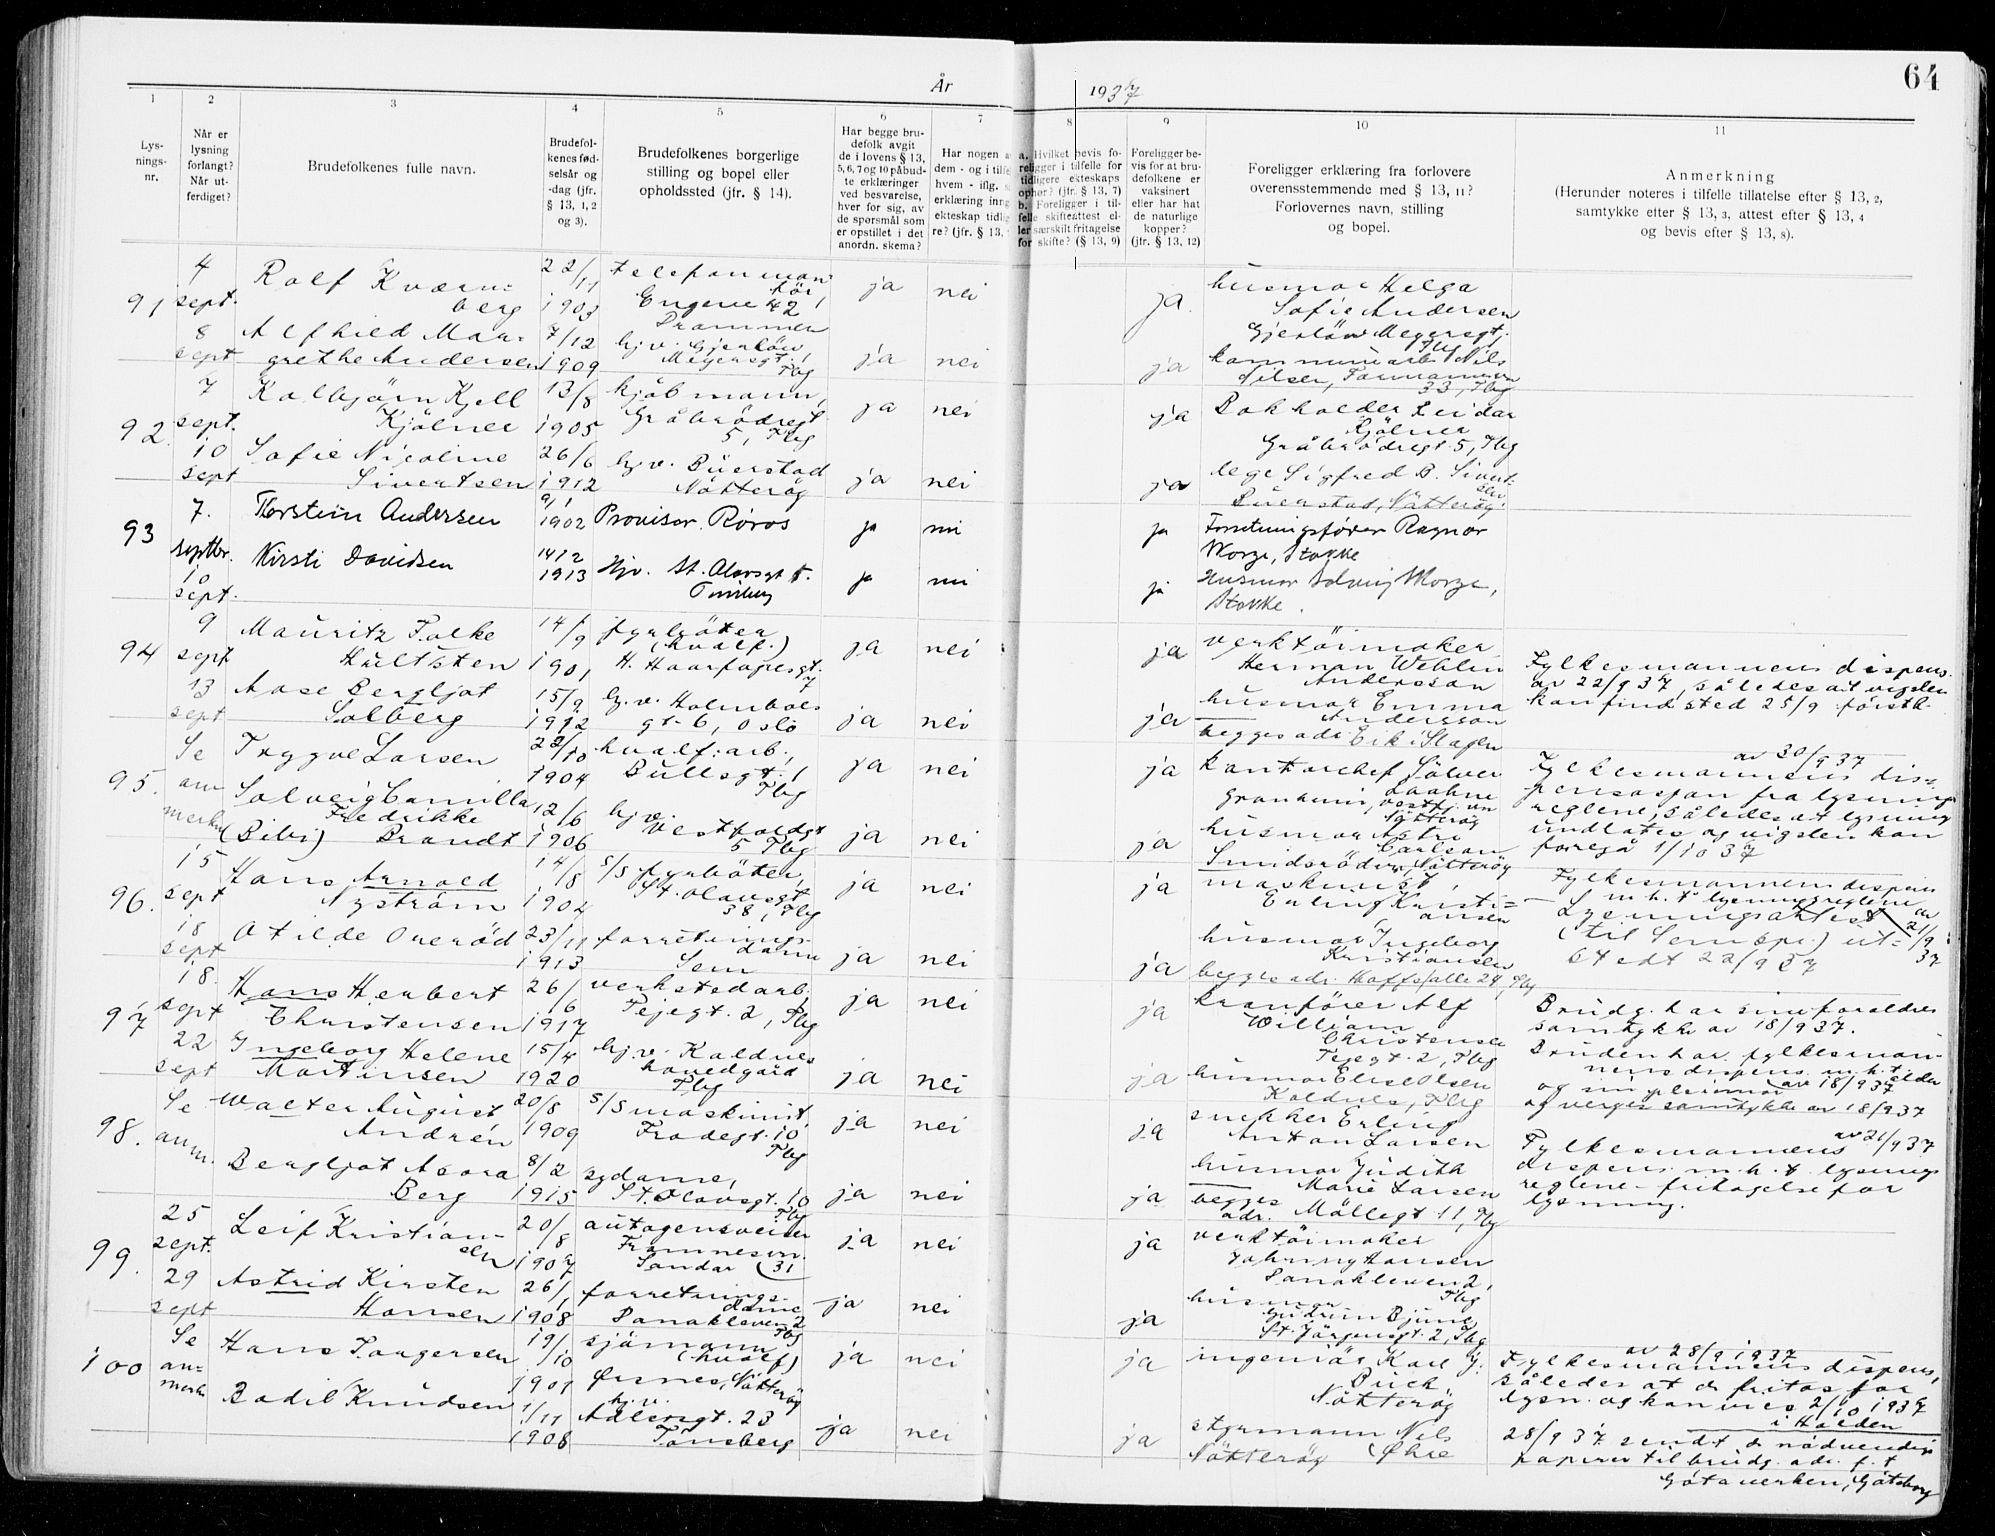 År 1937
64
1
2
3
4
5
6
7
8
9
10
11
Lys-
nings-
nr.
Når er
lysning
forlangt?
Når ut-
ferdiget?
Brudefolkenes fulle navn.
Brudefol-
kenes fød-
selsår og
-dag (jfr.
§ 13, 1, 2
og 3).
Brudefolkenes borgerlige
stilling og bopel eller
opholdssted (jfr. § 14).
Har begge bru-
defolk avgit
de i lovens § 13,
5, 6, 7 og 10 påbud-
te erklæringer
ved besvarelse,
hver for sig, av
de spørsmål som
er opstillet i det
anordn. skema?
Har nogen a
dem - og i tilfe
hvem - iflg. s
erklæring inng
ekteskap tidlig
re? (jfr. § 13,
a. Hvilket bevis fo-
religger i tilfelle for
tidligere ekteskaps
ophør? (jfr. § 13, 7)
b. Foreligger i til-
felle skifteattest el-
ler særskilt fritagelse
for skifte? (§ 13, 9)
Foreligger be-
vis for at bru-
defolkene er
vaksinert
eller har hat
de naturlige
kopper?
(jfr. § 13, 12)
Foreligger erklæring fra forlovere
overensstemmende med § 13, 11?
Forlovernes navn, stilling
og bopel.
Anmerkning
(Herunder noteres i tilfelle tillatelse efter § 13, 2,
samtykke efter § 13, 3, attest efter § 13, 4
og bevis efter § 13, 8).
91
4
sept.
Rolf Kværn-
berg
22/11
1903
telefonmon-
tör,
Engene 42
Drammen
ja
nei
ja.
husmor Helga
Sofie Andersen
Gjerlöw Meyersgt.
Tbg
8
sept
Alfhild Mar-
grethe Andersen
7/12
1909
hjv. Gjerlöw
Meyersgt. 1
Tbg
ja
nei
ja
kommunearb. Nils
Nilsen, Farmannsvn
33, Tbg
92.
7
sept.
Kolbjörn Kjell
Kjölner
13/8
1905
kjöbmann,
Gråbrödregt.
5, Tbg
ja
nei
ja
Bokholder Leidar
Kjölner
Gråbrödregt. 5, Tbg
10
sept
Sofie Nicoline
Sivertsen
26/6
1912
hjv. Buerstad
Nötteröy
ja
nei
ja
lege Sigfred B. Sivert-
sen
Buerstad, Nötteröy.
93
7.
septbr.
Thorstein Andersen
9/1
1902
Provisor, Røros
ja
nei
ja
Forretningsfører Ragnar
Korge, Stokke
10
sept.
Kirsti Davidsen
14/2
1913
Hjv. St. Olavsgt 5.
Tønsberg
ja
nei
ja
Husmor Solveig Korge,
Stokke.
94
9
sept
Mauritz Folke
Hultsten
14/9
1901
fyrböter
(hvalf.)
H. Haarfagresgt.
7
ja
nei
ja
verktöimaker
Herman Wehlin
Andersson
Fylkesmannens dispens.
av 22/9 37, således at vigslen
kan finde sted 25/9 förstk.
13
sept
Aase Bergljot
Solberg
15/9
1912
hjv. Holmboes
gt. 6, Oslo
ja
nei
ja
husmor Emma
Andersson
begges adr Eik i Slagen
95.
Se
an-
merkn.
Trygve Larsen
22/10
1904
hvalf. arb.,
Bullsgt. 1
Tbg
ja
nei
ja
kontorchef Sölver
Laahne
Nötteröy
av 30/9 37
Fylkesmannens dis-
pensasjon fra lysnings
reglene, således at lysning
undlates og vigslen kan
foregå 1/10 37
Solveig Camilla
Fredrikke
(Bibi) Brandt
12/6
1906
hjv.
Vestfoldgt
5 Tbg
ja
nei
ja
husmor Astri
Carlson
Smidsröd, Nötteröy
96.
15
sept
Hans Arnold
Nyström
14/8
1904
S/S fyrböter,
St. Olavsgt
38, Tbg
ja
nei
ja
maskinist,
Erling Kristi-
ansen
Fylkesmannens dispens
m. h. t. lysningsreglene
av 21/9 37
Lysningsattest
(til Sem spr.) ut-
stedt 22/9 37
18
sept
Otilde Overød
23/11
1913
forretnings-
dame
Sem
ja
nei
ja
husmor Ingeborg
Kristiansen
begges adr. Hoffs alle 29, Tbg
97
18.
sept
Hans Herbert
Christensen
26/6
1917
verkstedarb.
Tejegt. 2, Tbg
ja
nei
ja
kranförer Alf
William
Christensen
Tejegt. 2, Tbg
Brudg. har sine foreldres
samtykke av 18/9 37.
22
sept
Ingeborg Helene
Martinsen
15/4
1920
hjv. Kaldnes
hovedgård
Tbg
ja
nei
ja
husmor Elise Olsen
Kaldnes, Tbg
Bruden har fylkesman-
nens dispens. m. h. t. alder
av 18/9 37
og verges samtykke av 18/9 37
98.
Se
anm.
Walter August
Andrén
20/8
1909
S/S maskinist,
Frodegt. 10
Tbg
ja
nei
ja
snekker Erling
Anton Larsen
av 21/9 37
Fylkesmannens
dispens. m. h. t. lysnings
reglene - fritagelse for
lysning.
Bergljot Asora
Berg
8/2
1915
sydame,
St. Olavsgt. 10
Tbg
ja
nei
ja
husmor Judith
Marie Larsen
begges
adr. Møllegt 11, Tbg
99.
25
sept.
Leif Kristian-
sen
20/8
1907
autogensveiser
Framnesvn.
Sandar 31
ja
nei
ja
verktöimaker
Johnny Hansen
Banakleven 2,
Tbg
29
sept
Astrid Kirsten
Hansen
26/1
1908
forretnings-
dame
Banakleven 2
Tbg
ja
nei
ja
husmor
Gudrun Bjune
St. Jörgensgt. 2, Tbg
100
Se
an-
merkn
Hans Torgersen
19/10
1901
sjömann
(hvalf)
Ørsnes, Nötteröy
ja
nei
ja
ingeniör Karl J.
Buck
Nötteröy
av 28/9 1937
Fylkesmannens dispens,
således at de fritas for
lysn. og kan vies 2/10 1937
i Halden
Bodil Knudsen
1/11
1908
hjv.
Adlersgt. 23
Tönsberg
ja
nei
ja
styrmann Nils
Nötteröy Øhre
28/9 37 sendt de nödvendige
papirer til brudg. adr. f. t
Götaverken, Göteborg